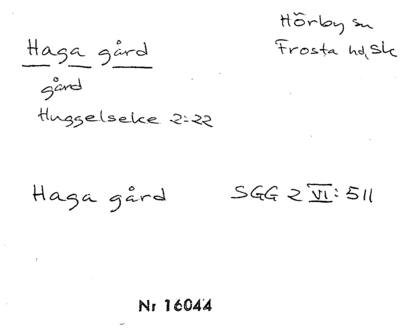 Hörby sn
Haga gård
Frosta hd, Sk
gård
Huggelseke 2:22
Haga gård SGG 2 VI: 511
Nr 16044